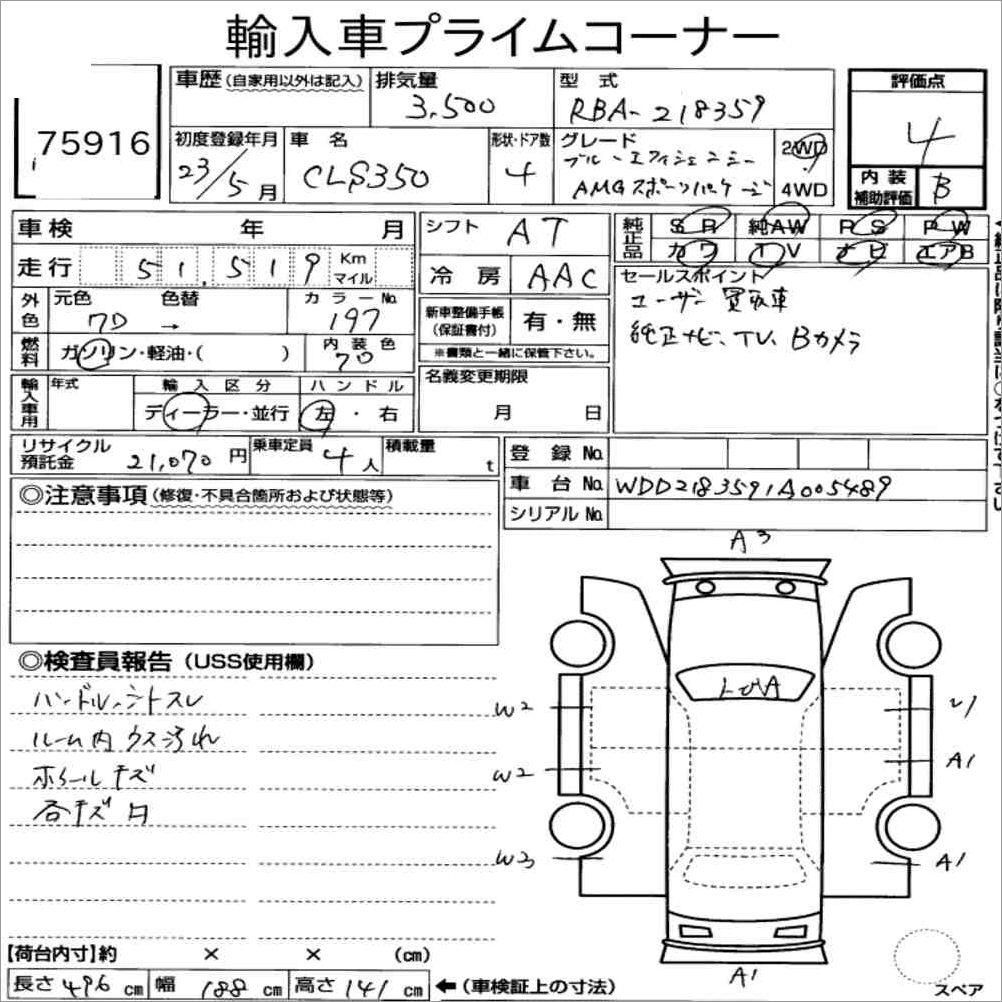 輸入車プライムコーナー
75916
車歴 (自家用以外は記入)
排気量
3,500
型 式
RBA-218359
評価点
4
初度登録年月
23/5月
車 名
CLS350
形状・ドア数
4
グレード
ブルーエフィシェンシー
AMGスポーツパッケージ
2WD
4WD
内装補助評価
B
車検 年 月
シフト
AT
純正品
SR 純AW PS PW
カワ TV ナビ エアB
走行
51,519
Km
マイル
冷 房
AAC
セールスポイント
ユーザー買取車
純正ナビ、TV、Bカメラ
外色
元色 色替
7D →
カラーNo.
197
新車整備手帳
(保証書付)
有・無
※書類と一緒に保管下さい。
燃料
ガソリン・軽油・( )
内装色
70
名義変更期限
月 日
輸入車用
年式
輸入区分
ディーラー・並行
ハンドル
左・右
リサイクル
預託金
21,070円
乗車定員
4人
積載量
t
登 録 No.
車 台 No.
WDD2183591A005489
シリアル No.
◎注意事項 (修復・不具合箇所および状態等)
◎検査員報告 (USS使用欄)
ハンドル、シートスレ
ルーム内ウス汚れ
ホイールキズ
各キズ
A3
W2
W2
W3
A1
A1
A1
スペア
【荷台内寸】約 × × (cm)
長さ 496 cm
幅 188 cm
高さ 141 cm
←(車検証上の寸法)